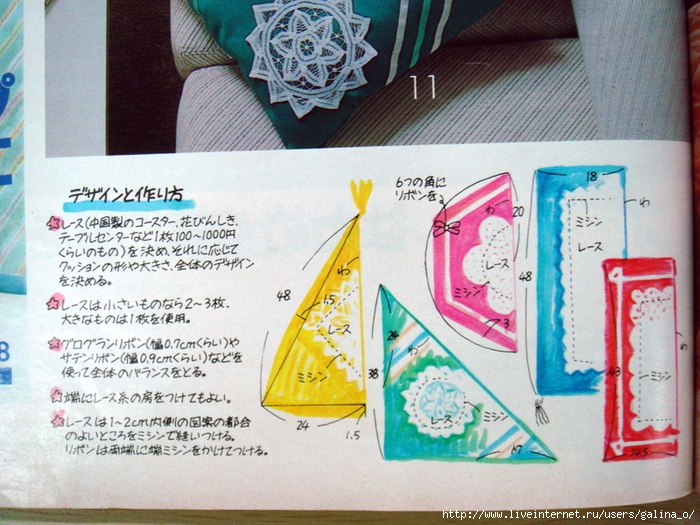 11
デザインと作り方
☆レース(中国製のコースター、花びんしき、
テーブルセンターなど1枚100〜1000円
くらいのもの)を決め、それに応じて
クッションの形や大きさ、全体のデザイン
を決める。
☆レースは小さいものなら2〜3枚、
大きなものは1枚を使用。
☆グログランリボン(幅0.7cmくらい)や
サテンリボン(幅0.9cmくらい)などを
使って全体のバランスをとる。
☆端にレース糸の房をつけてもよい。
☆レースは1〜2cm内側の図案の都合
のよいところをミシンで縫いつける。
リボンは両端に端ミシンをかけてつける。
48
わ
1.5
レース
ミシン
38
24
1.5
6つの角に
リボンを
わ
20
レース
ミシン
3
48
24
わ
レース
ミシン
17
18
わ
ミシン
レース
わ
43
ミシン
14.5
8
http://www.liveinternet.ru/users/galina_o/